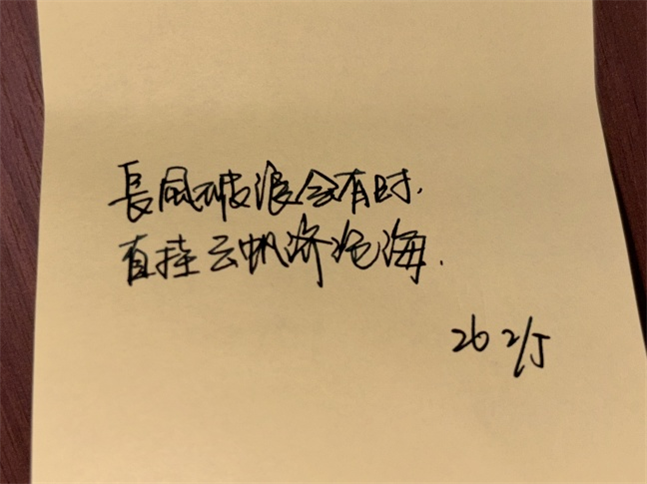 長風破浪会有时.
直挂云帆济沧海.
26 2/5